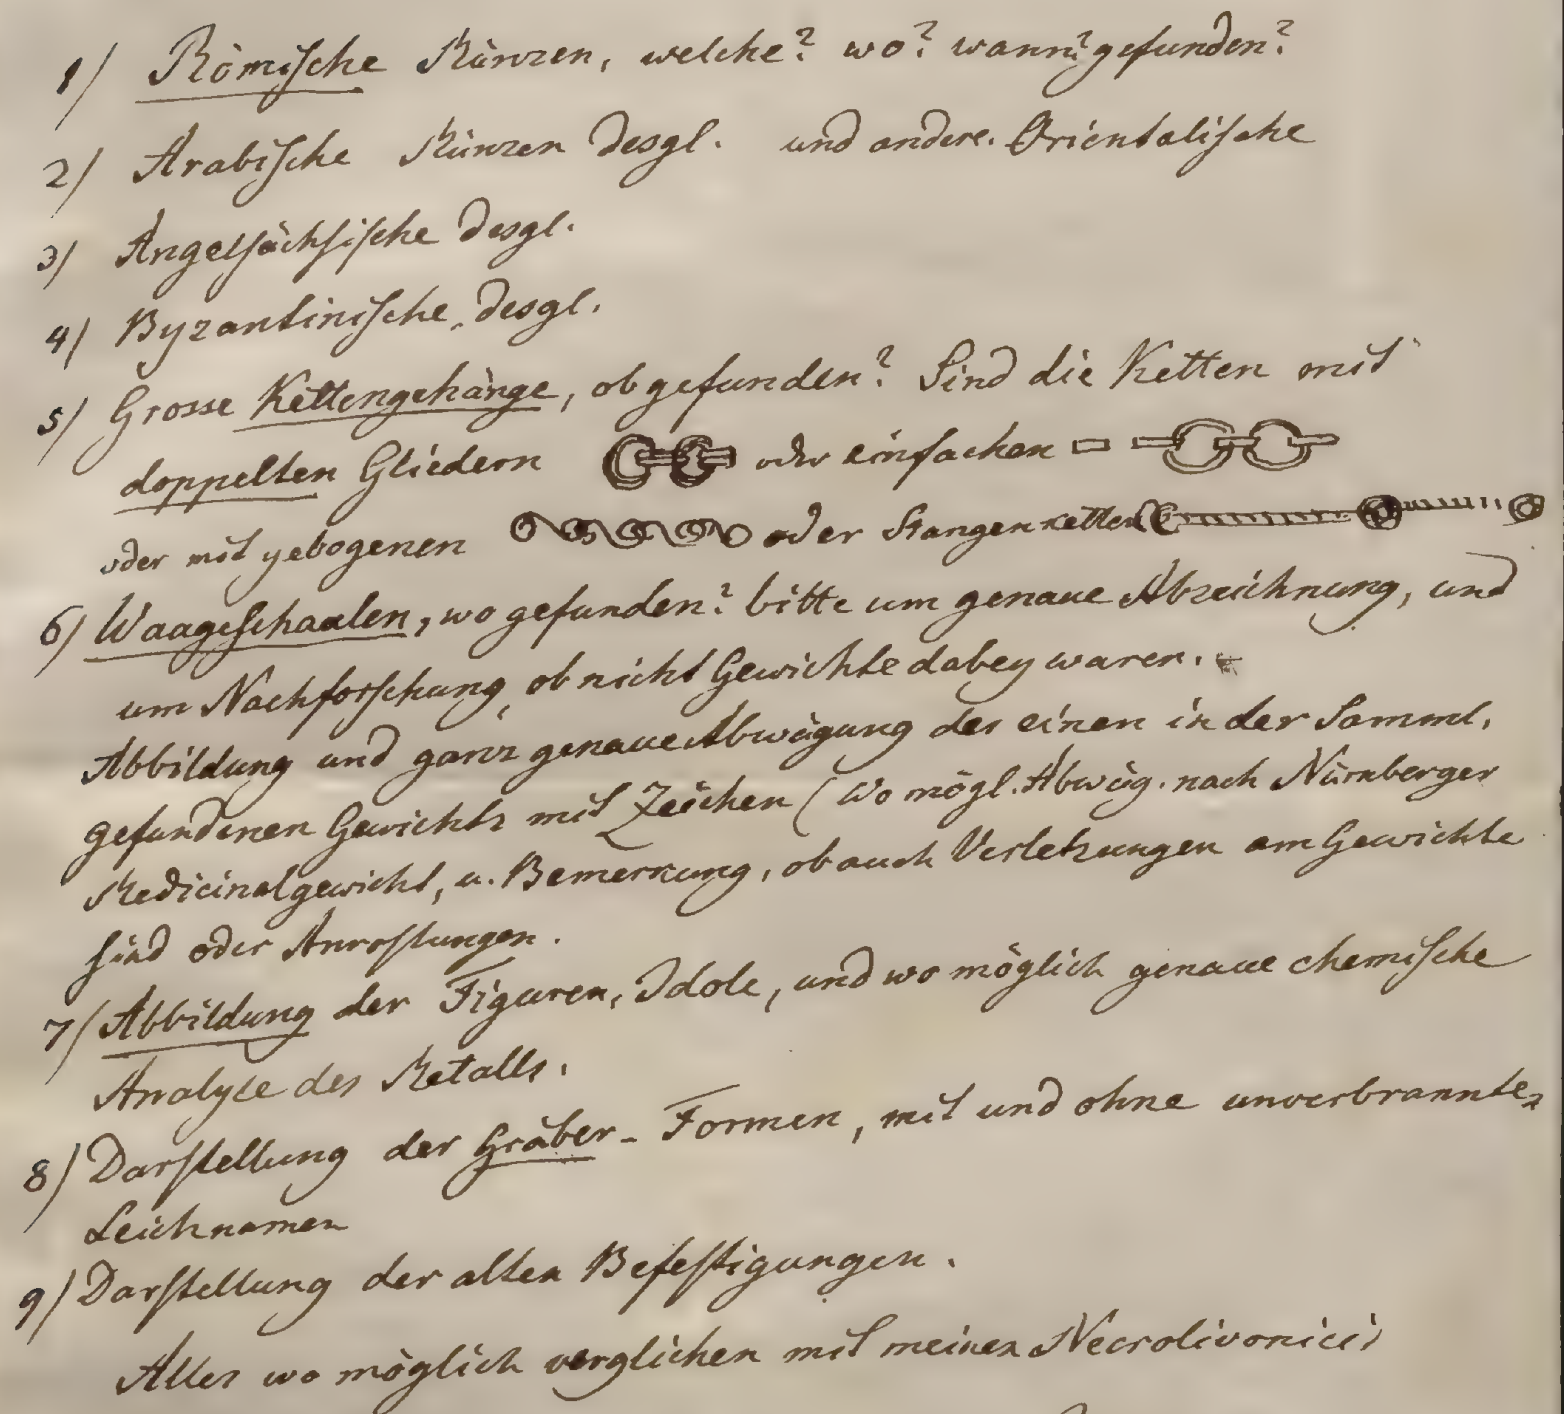 1) Römische Münzen, welche? wo? wann? gefunden?
2) Arabische Münzen desgl. und andere Orientalische
3) Angelsächsische desgl.
4) Byzantinische, desgl.
5) Grosse Kettengehänge, ob gefunden? Sind die Ketten mit
doppelten Gliedern oder einfachen
oder mit gebogenen oder Stangenketten
6) Waageschaalen, wo gefunden? bitte um genaue Abzeichnung, und
um Nachforschung, ob nicht Gewichte dabey waren.
Abbildung und ganz genaue Abwägung des einen in der Samml.
gefundenen Gewichts mit Zeichen (Wo mögl. Abwäg. nach Nürnberger
Medicinalgewicht, u. Bemerkung, ob auch Verletzungen am Gewichte
sind oder Anrostungen.
7) Abbildung der Figuren, Idole, und wo möglich genaue chemische
Analyse des Metalls.
8) Darstellung der Gräber-Formen, mit und ohne unverbrannten
Leichnamen
9) Darstellung der alten Befestigungen.
Alles wo möglich verglichen mit meinen Necrolivonicis